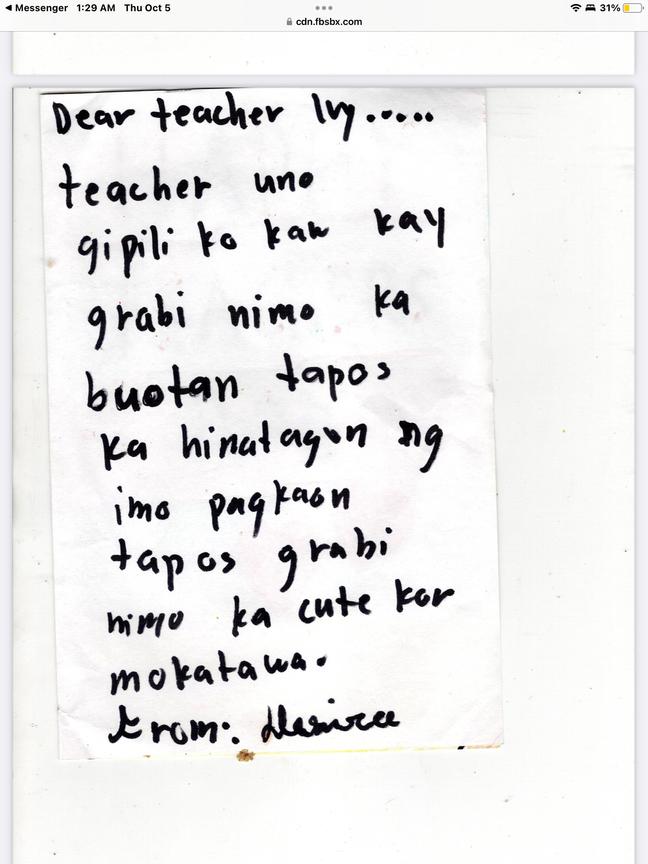 Messenger 1:29 AM Thu Oct 5
31%
cdn.fbsbx.com
Dear teacher Ivy.....
teacher uno
gipili ko kaw kay
grabi nimo ka
buotan tapos
ka hinatagon ng
imo pagkaon
tapos grabi
nimo ka cute kor
mokatawa.
From: Desiree